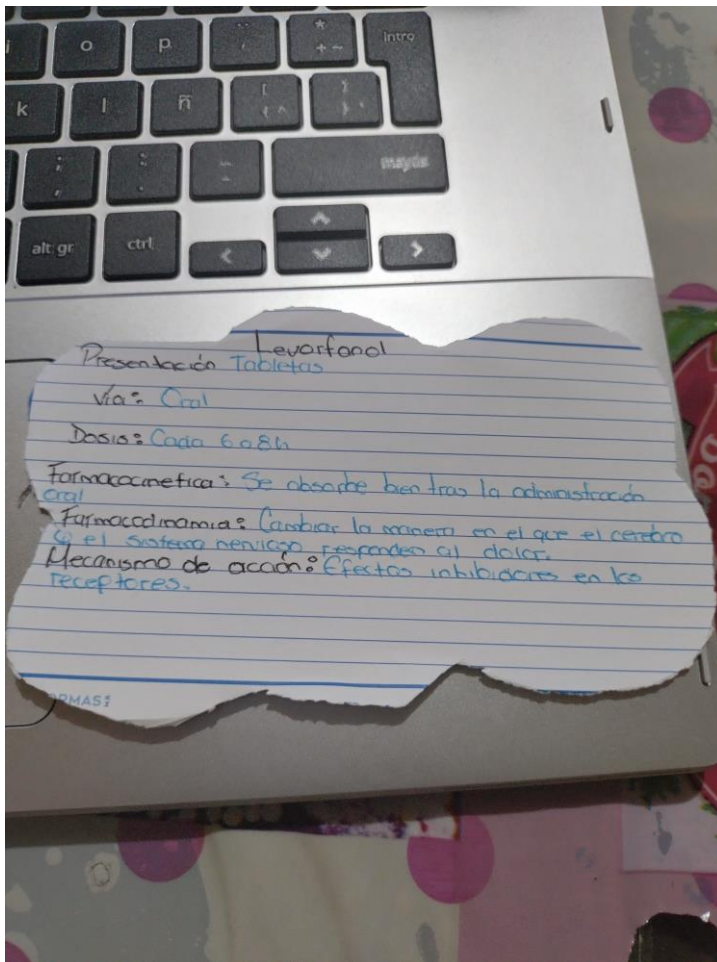 o
p
* + ~
intro
k
l
ñ
mayús
alt gr
ctrl
Levorfanol
Presentación Tabletas
Vía: Oral
Dosis: Cada 6 a 8h
Farmacocinetica: Se absorbe bien tras la administración
oral
Farmacodinamia: Cambiar la manera en el que el cerebro
y el sistema nervioso responden al dolor.
Mecanismo de acción: Efectos inhibidores en los
receptores.